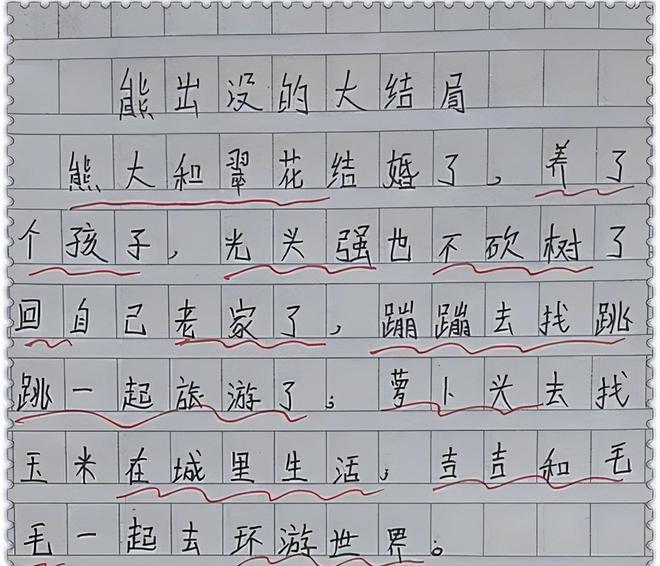 熊出没的大结局
熊大和翠花结婚了，养了
个孩子，光头强也不砍树了
回自己老家了，蹦蹦去找跳
跳一起旅游了；萝卜头去找
玉米在城里生活，吉吉和毛
毛一起去环游世界。